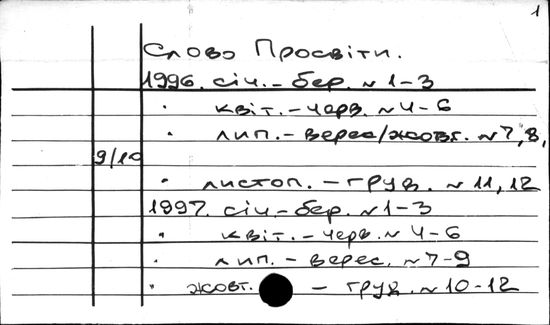 1
Слово Просвіти.
1996. січ. - бер. №1-3
" квіт. - черв. №4-6
" лип. - верес/жовт. №7,8,
9/10
" листоп. - груд. №11,12
1997. січ. - бер. №1-3
" квіт. - черв. №4-6
" лип. - верес. №7-9
" жовт. - груд. №10-12